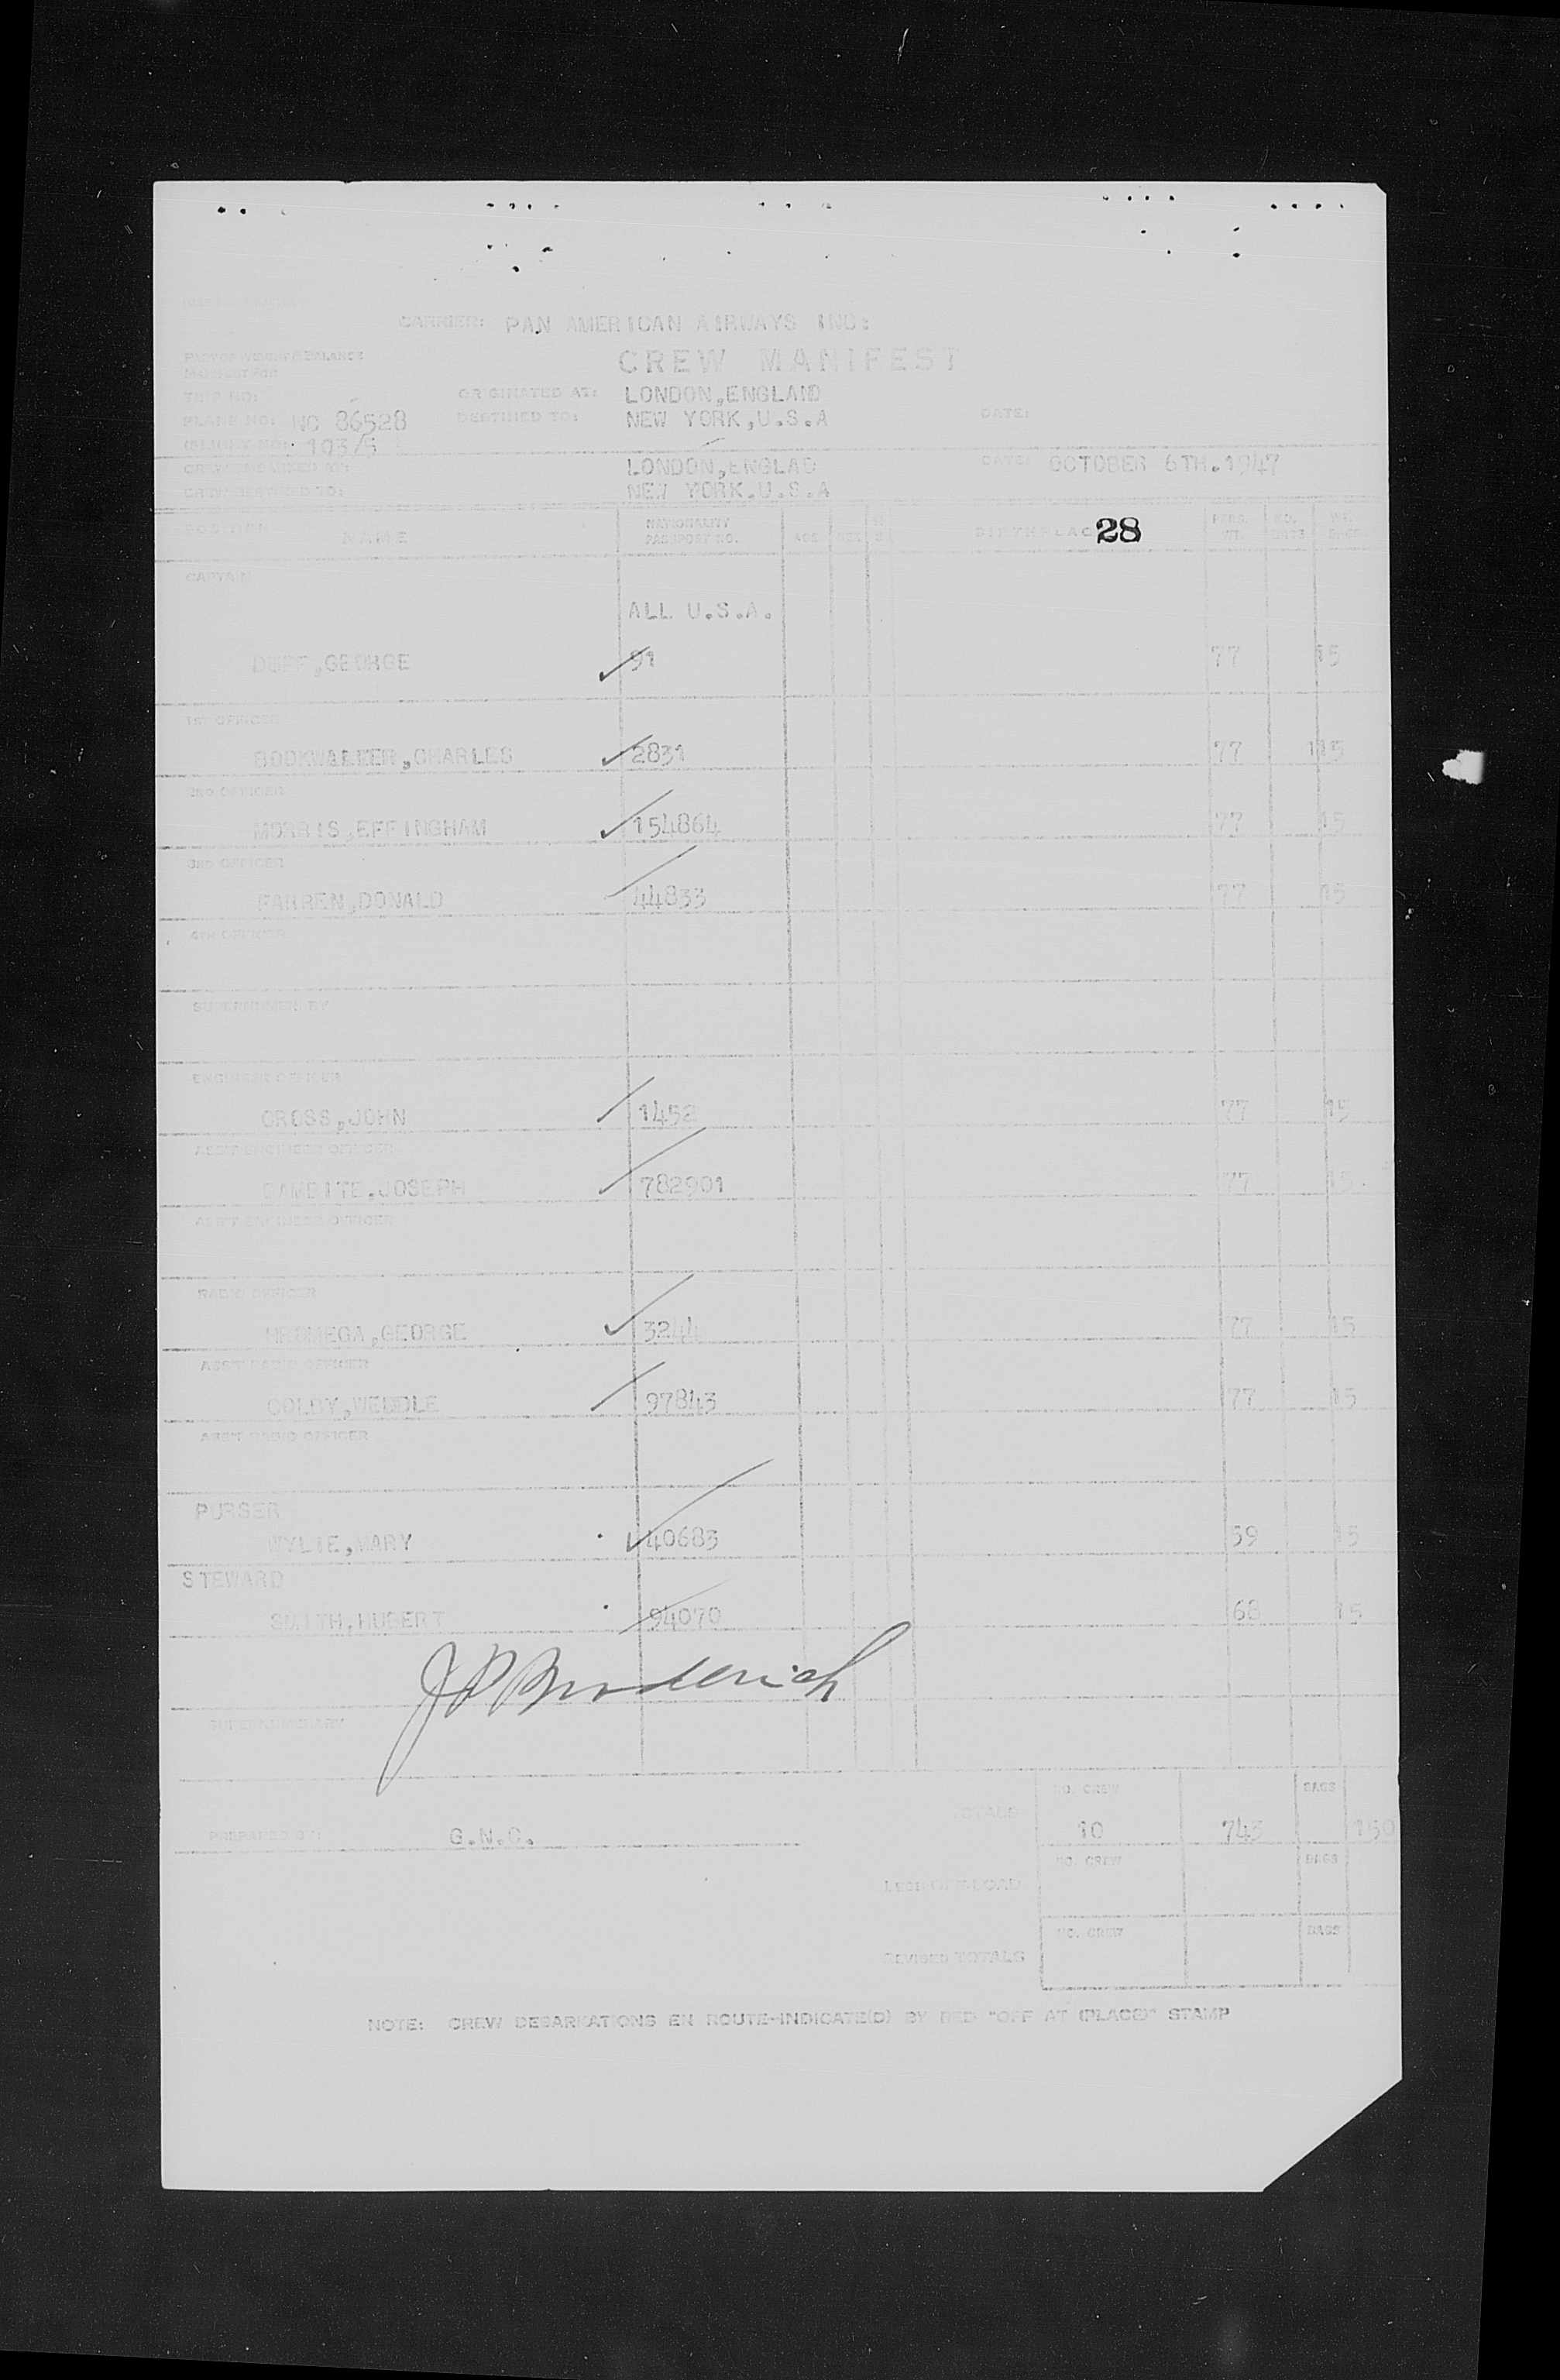 CARRIER: PAN AMERICAN AIRWAYS INC:
CREW MANIFEST
PART OF WEIGHT & BALANCE
TRIP NO: ORIGINATED AT: LONDON,ENGLAND
PLANE NO: NC 86528 DESTINED TO: NEW YORK,U.S.A DATE:
FLIGHT NO: 103/5
LONDON,ENGLAD DATE: OCTOBER 6TH.1947
NEW YORK.U.S.A
POSITION NAME NATIONALITY PASSPORT NO. AGE SEX BIRTHPLAC 28 PERS. WT. NO. WT.
CAPTAIN
ALL U.S.A.
DUFF,GEORGE 91 77 15
1ST OFFICER
BOOKWALTER,CHARLES 2831 77 115
2ND OFFICER
MORRIS,EFFINGHAM 154864 77 15
3RD OFFICER
FARREN,DONALD 44833 77 15
4TH OFFICER
ENGINEER OFFICER
CROSS,JOHN 1452 77 15
ASS'T ENGINEER OFFICER
JOSEPH 782901 77 15
ASS'T ENGINEER OFFICER
RADIO OFFICER
GEORGE 3244 77 15
ASS'T RADIO OFFICER
COLBY,WEDDLE 97843 77 15
ASS'T RADIO OFFICER
PURSER
WYLIE,MARY 40683 59 15
STEWARD
SMITH,HUBERT 94070 68 15
J P Broderick
SUPERNUMERARY
NO. CREW BAGS
TOTALS 10 743 150
PREPARED BY: G.N.C.
NO. CREW BAGS
NO. CREW BAGS
REVISED TOTALS
NOTE: CREW DEBARKATIONS EN ROUTE-INDICATE(D) BY RED "OFF AT (PLACE)" STAMP